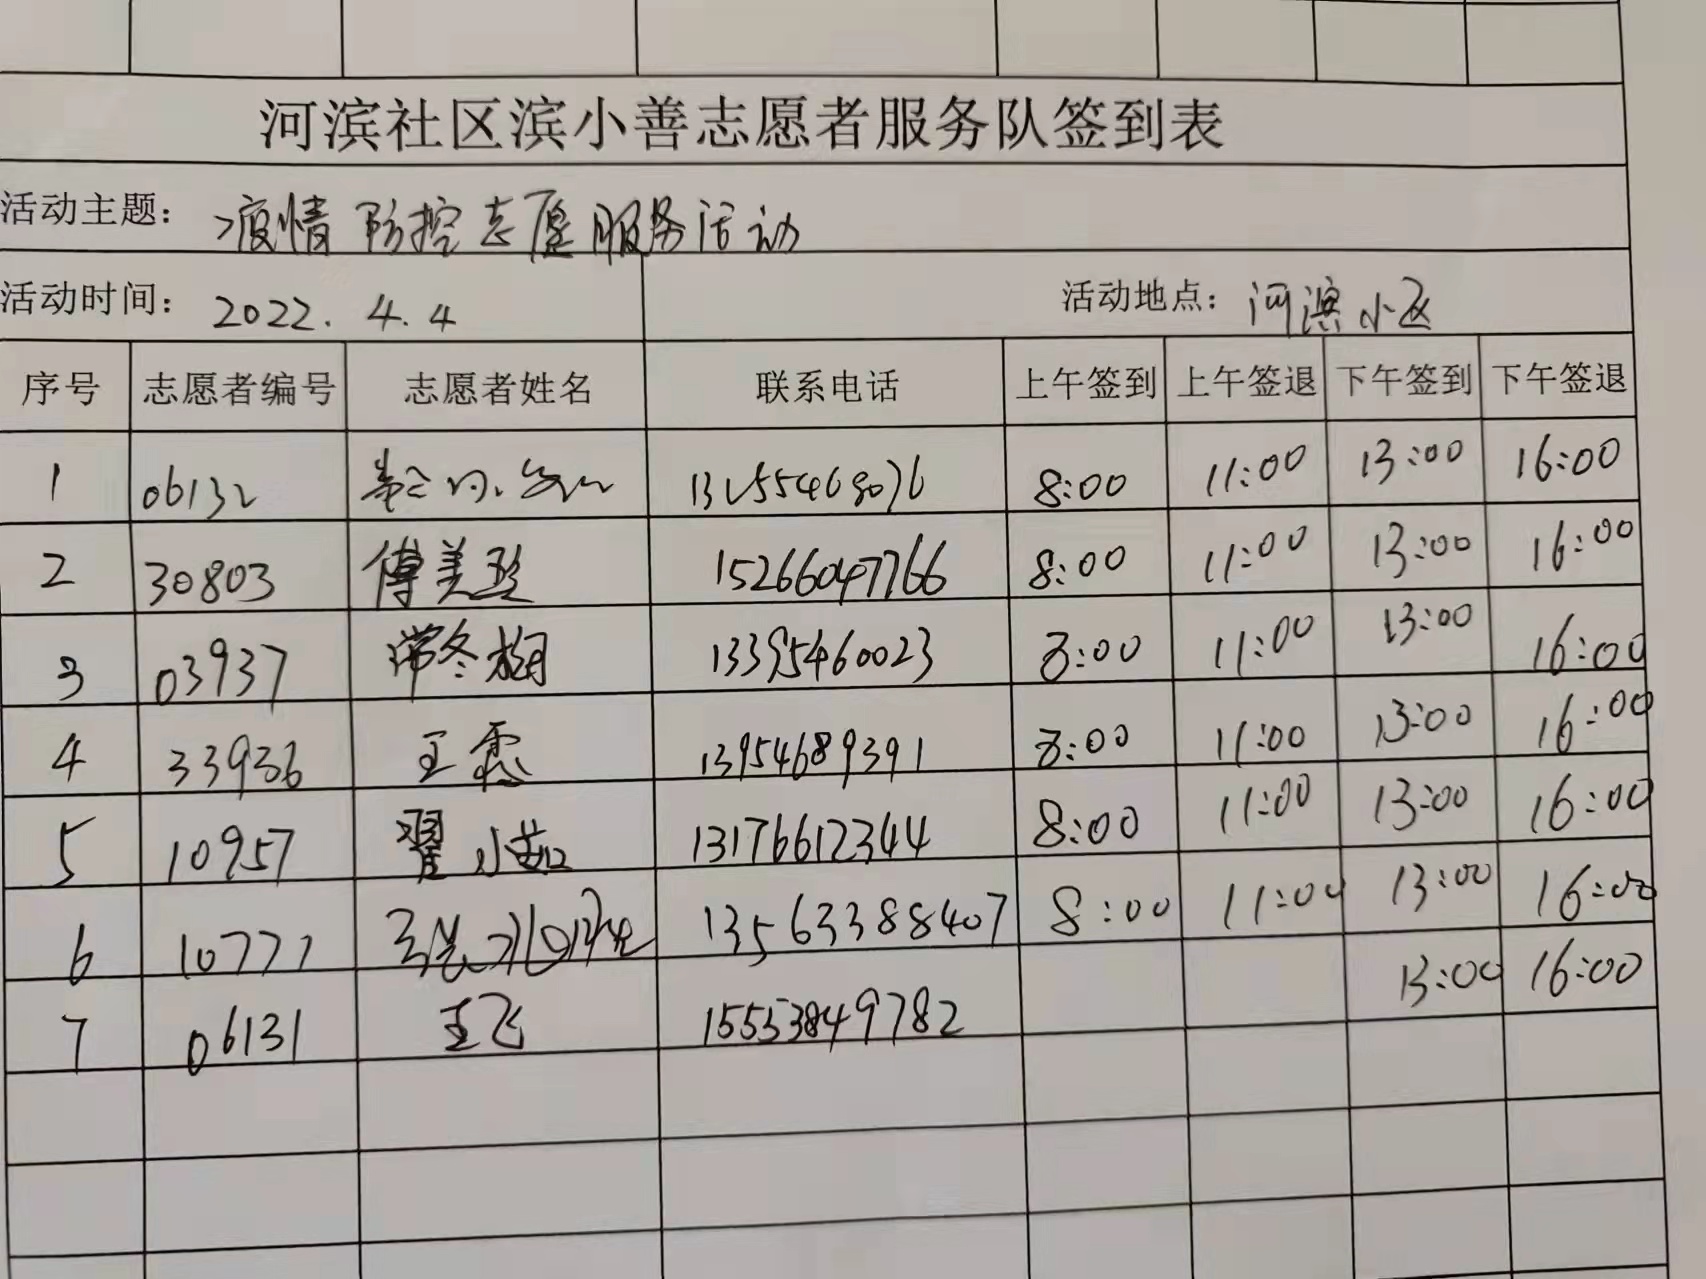 河滨社区滨小善志愿者服务队签到表
活动主题: 疫情防控志愿服务活动
活动时间: 2022.4.4 活动地点: 河滨小区
序号 志愿者编号 志愿者姓名 联系电话 上午签到 上午签退 下午签到 下午签退
1 06132 8:00 11:00 13:00 16:00
2 30803 傅美玲 15266047766 8:00 11:00 13:00 16:00
3 03937 常冬梅 13395460023 8:00 11:00 13:00 16:00
4 33936 王霞 13954689391 8:00 11:00 13:00 16:00
5 10957 翟小茹 13176612344 8:00 11:00 13:00 16:00
6 10777 13563388407 8:00 11:00 13:00 16:00
7 06131 王飞 15553849782 13:00 16:00